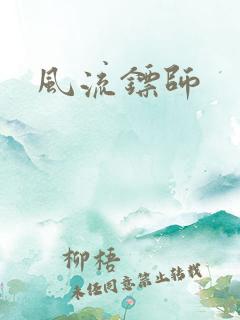 風流鏢師
柳梧
未经同意禁止转载